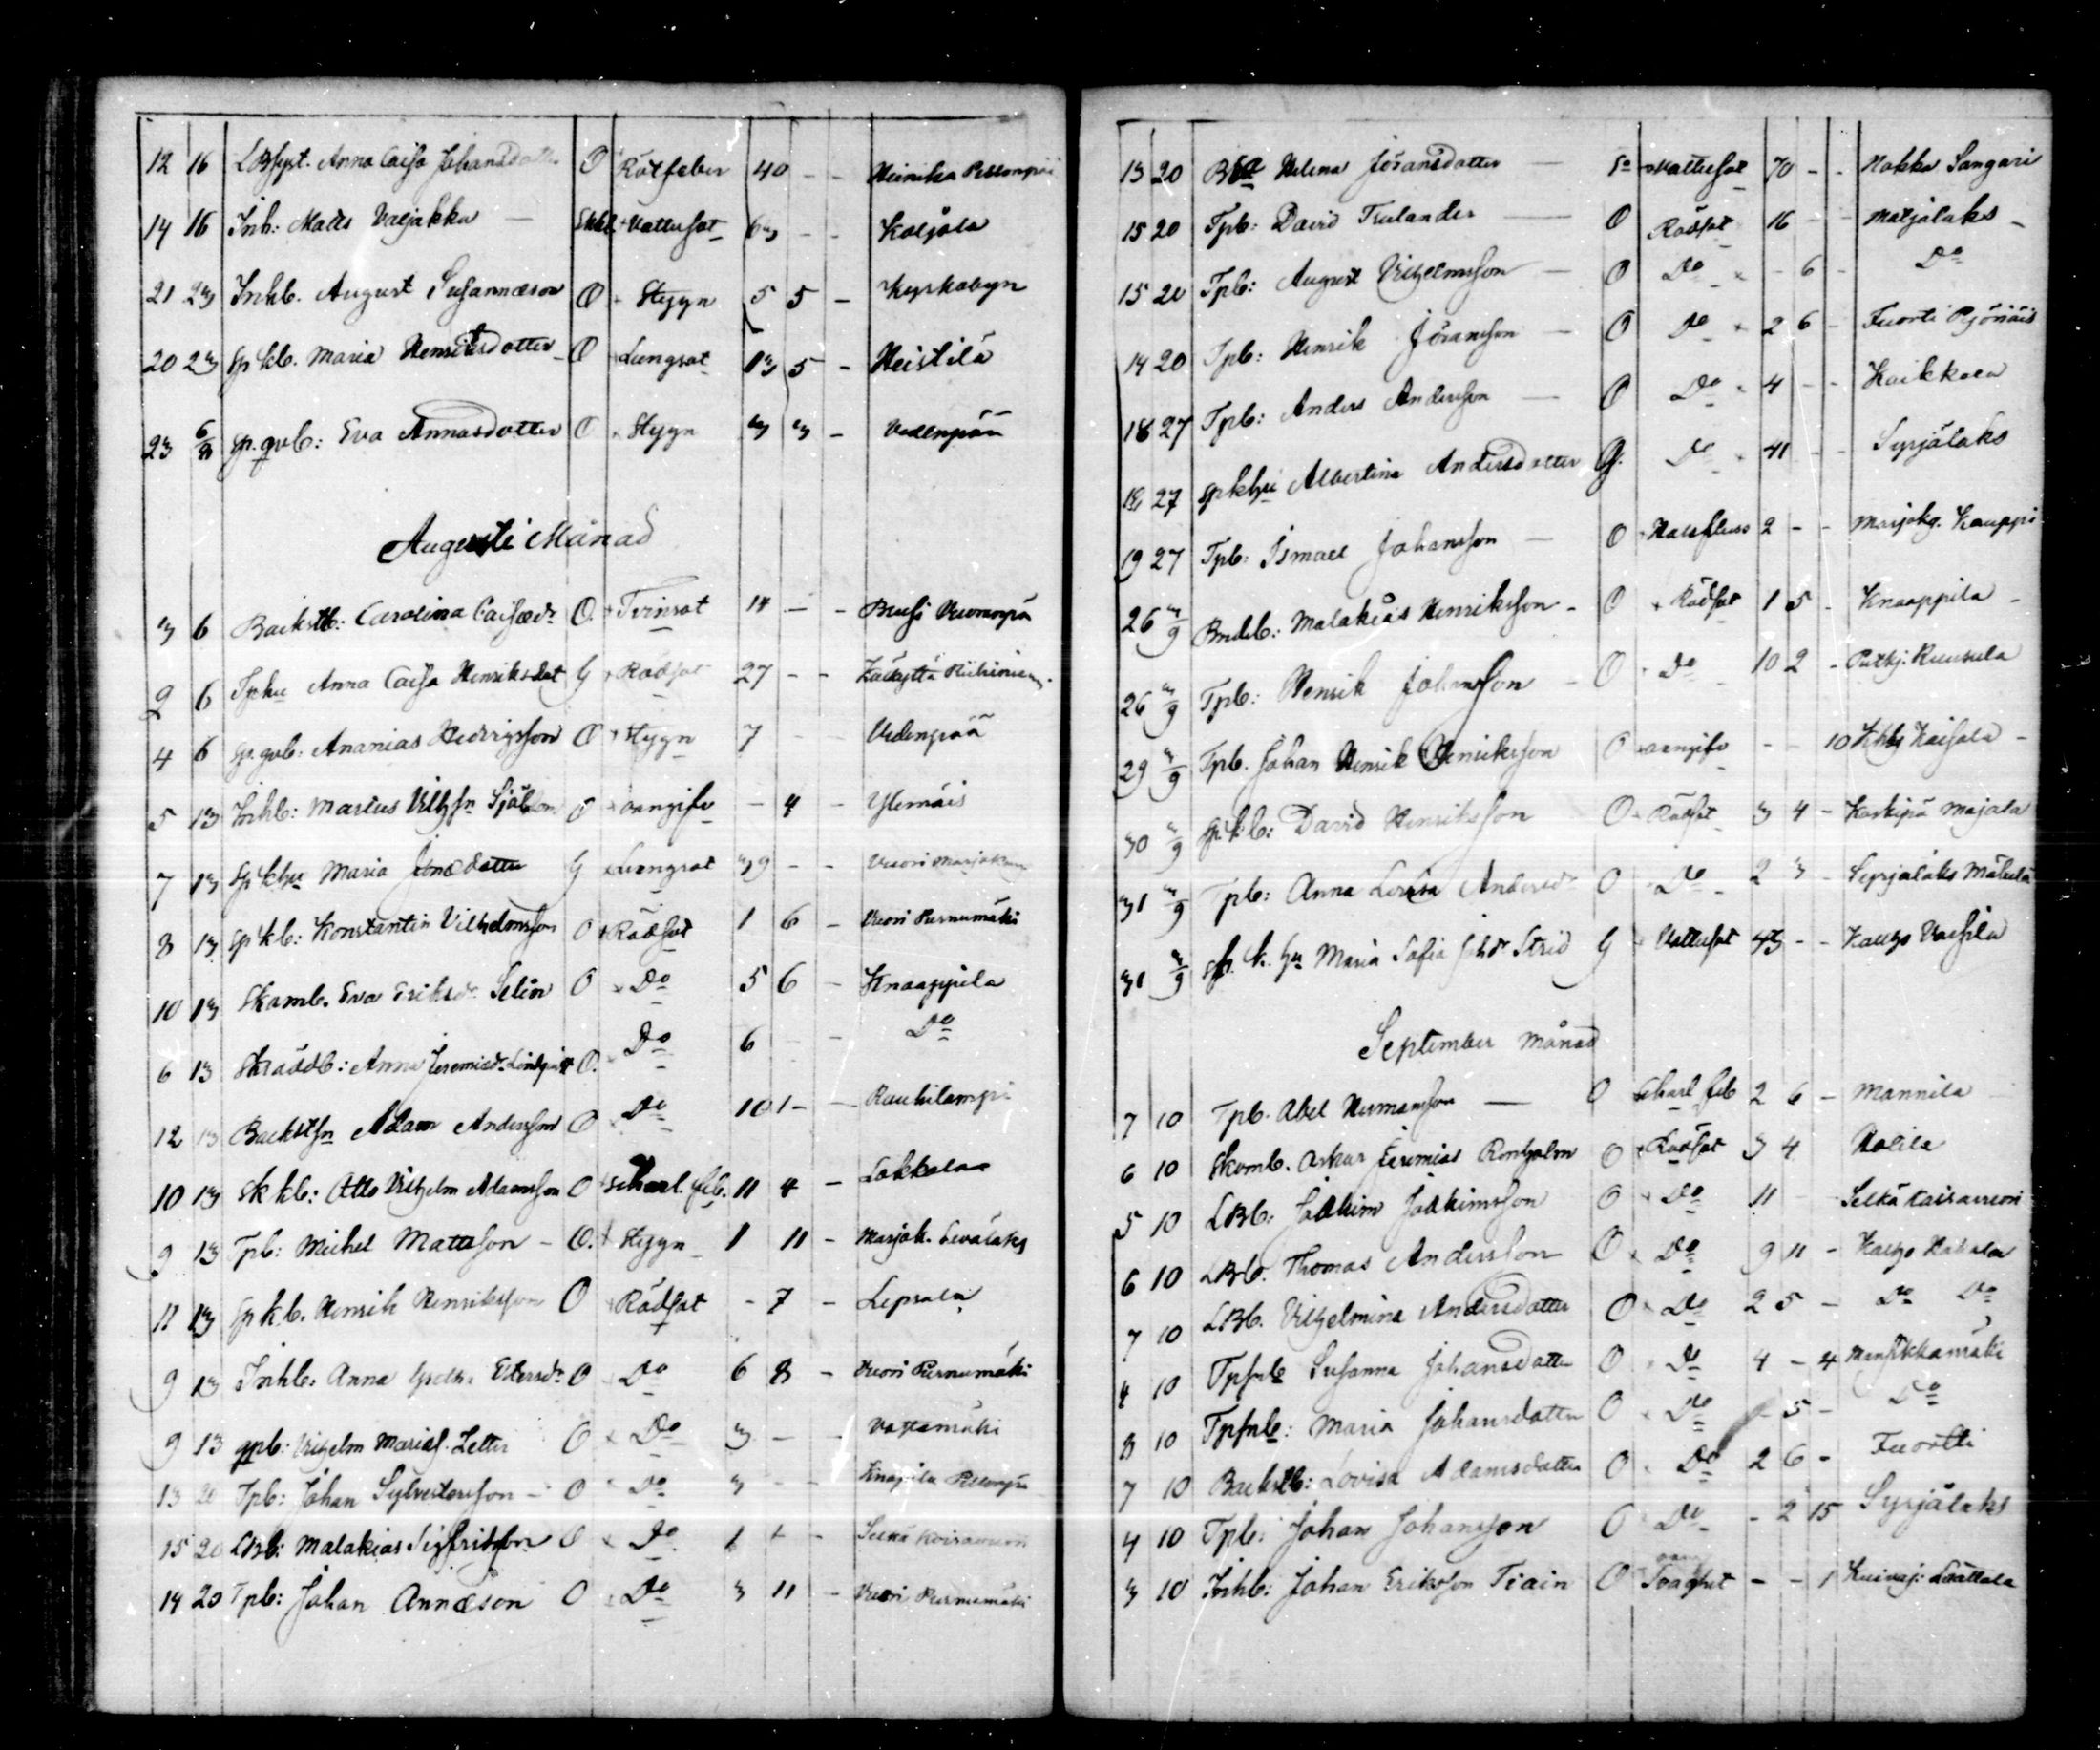 12 16 LBhyst. Anna Caisa Johansdotter O Rötfeber 40 - - Heinika
14 16 Inh: Matts Valjakka - Enkl. Vattusot 63 - - Koljola
21 23 Inhb. August Susannæson O Hygn 5 5 - Kyrkobyn
20 23 Sp kb. Maria Henriksdotter O Lungsot 13 5 - Heistilä
23 6/8 Sp. gvb: Eva Annasdotter O Hygn 3 3 - Vedenpää
Augusti Månad
3 6 Backstb: Carolina Caisædr O. Tvinsot 14 - -
2 6 Anna Caisa Henriksdot G Rödsot 27 - -
4 6 Sp. gvb: Ananias Hedvigsson O Hygn 7 - - Vedenpää
5 13 Inhb: Marcus Vilhsn O oangifv - 4 - Ylemäis
7 13 Sp khu Maria G Lungsot 39 - - Vuori
8 13 Sp kb: Konstantin Vilhelmsson O Rödsot 1 6 - Vuori Purnumäki
10 13 Skomb. Eva Eriksdr Selin O Do 5 6 - Knaappila
6 13 Skrädb: Anna Jeremiædr Lindqvist O. Do 6 - - Do
12 13 Backstsn Adam Andersson O Do 10 1 - Rauhilampi
10 13 Sk kb: Otto Vilhelm Adamsson O Scharl. feb. 11 4 - Lokkola
9 13 Tpb: Michel Mattsson - O. Hygn 1 11 - Marjok.
11 13 Sp kb. Henrik Henriksson O Rödsot - 7 - Lepsala
9 13 Inhb: Anna O Do 6 8 - Vuori Purnumäki
9 13 Vilhelm Mariaf. Letter O Do 3 - - Vattamäki
13 20 Tpb: Johan Sylvestersson - O Do 3 - -
15 20 LBb: Malakias Sigfridsson O Do 1 - - Selkä
14 20 Tpb: Johan Annæson O Do 3 11 - Vuori Purnumäki
13 20 Helena Göransdotter - Vattusot 70 - - Hokka Sangari
15 20 Tpb: David Trulander - O Rödsot 16 - - Matjalaks
15 20 Tpb: August Vilhelmsson - O Do - 6 - Do
14 20 Tpb: Henrik Göransson - O Do 2 6 -
18 27 Tpb: Anders Andersson - O Do 4 - - Kaikkala
18 27 Sp khu Albertina Andersdotter G. Do 41 - - Syrjälaks
19 27 Tpb: Ismael Johansson - O Halsfluss 2 - - Marjokg. Kauppi
26 3/9 Bmdb: Malakias Henriksson - O Rödsot 1 5 - Knaappila
26 3/9 Tpb: Henrik Johansson - O Do 10 2 - Putkj: Ruusula
29 3/9 Tpb. Johan Henrik Henriksson O oangifv - - 10 Kaisala
30 3/9 Sp kb: David Henriksson O Rödsot 3 4 - Majala
31 3/9 Tpb: Anna Lovisa Andersdr O Do 2 3 - Syrjälaks
31 3/9 Sp. k. hu Maria Sofia Johdr Strid G Vattusot 43 - -
September månad
7 10 Tpb. Abel Hermansson - O Scharl feb 2 6 - Mannila
6 10 Skomb. Oskar Jeremias Ronholm O Rödsot 3 4
5 10 LBb: Joakim Joakimsson O Do 11 - Selkä
6 10 LBb. Thomas Andersson O Do 9 11 -
7 10 LBb. Vilhelmina Andersdotter O Do 2 5 - Do Do
4 10 Susanna Johansdotter O Do 4 - 4 Mansikkamäki
8 10 Maria Johansdotter O Do - 5 - Do
7 10 Backstb: Lovisa Adamsdotter O Do 2 6 -
4 10 Tpb: Johan Johansson O Do - 2 15 Syrjälaks
3 10 Inhb: Johan Eriksson Tiain O - - 1